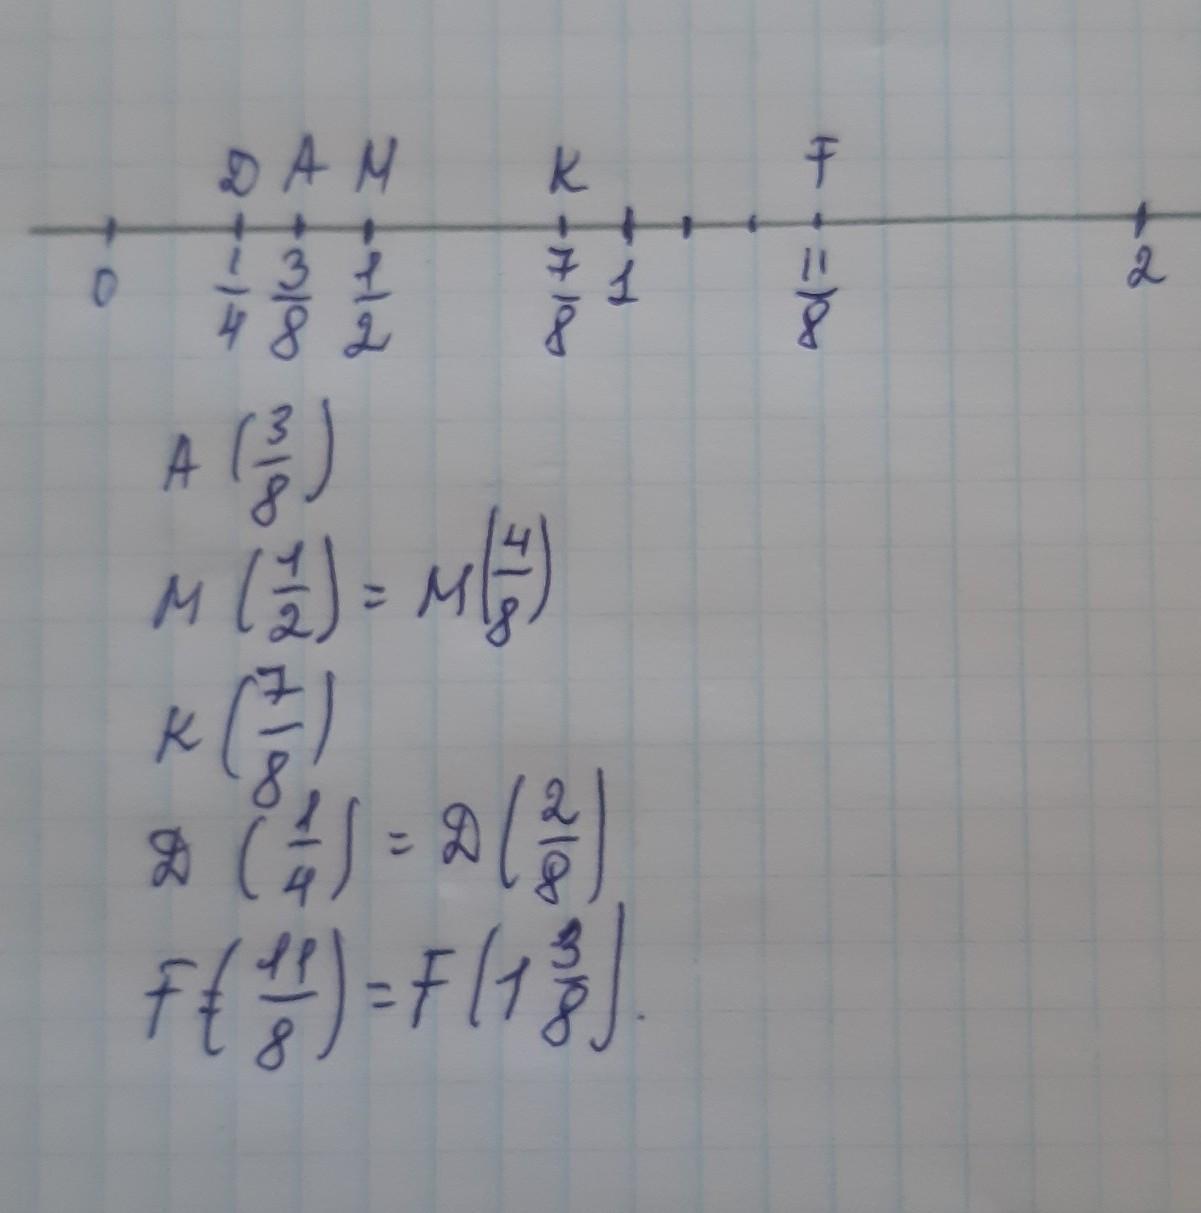 D A M K F
0 1/4 3/8 1/2 7/8 1 11/8 2
A (3/8)
M (1/2) = M(4/8)
K (7/8)
D (1/4) = D(2/8)
F=(11/8) = F(1 3/8).